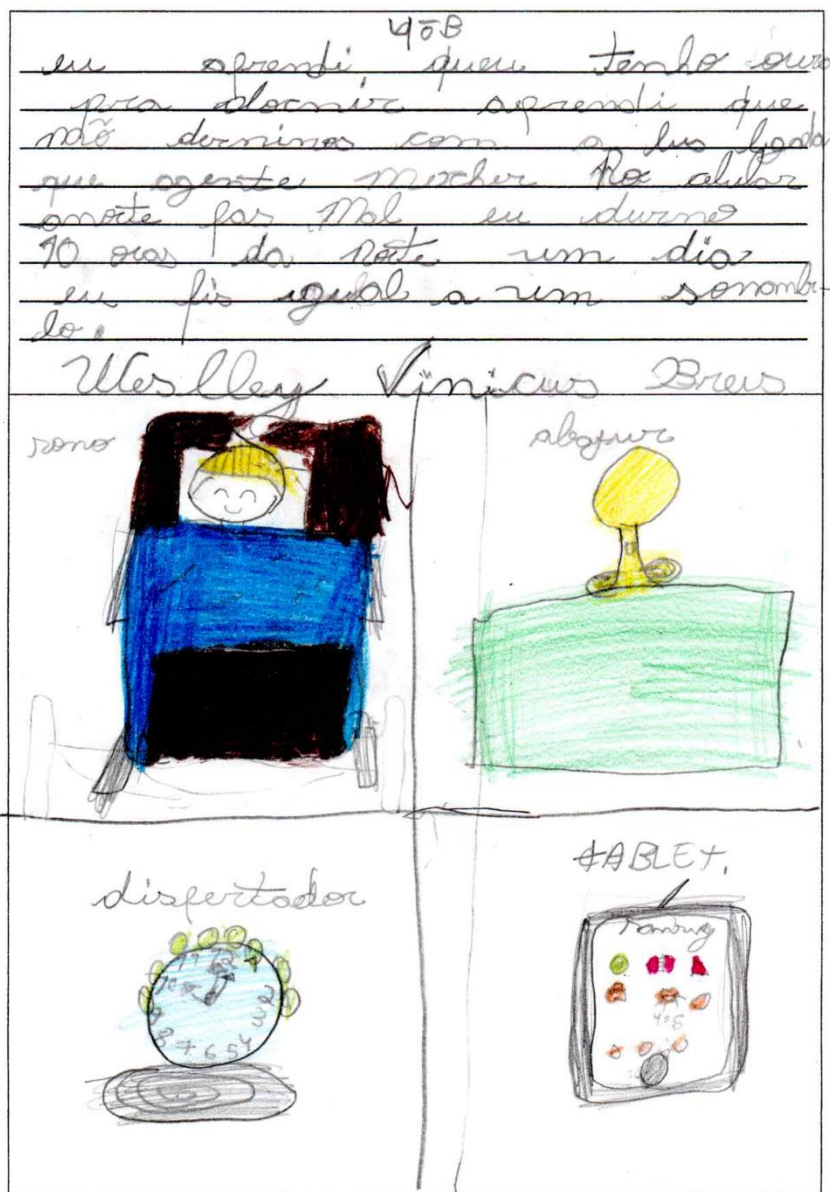 4ºB
eu aprendi queu tenho oura
pra docmir aprendi que
não derminos com a lus ligada
que agente mexcher no celular
anoite fas mal eu durmo
10 oras da noite um dia
eu fis igual a um sonombu-
lo.
Weslley Vinicius Breis
sono
abajur
dispertador
TABLET.